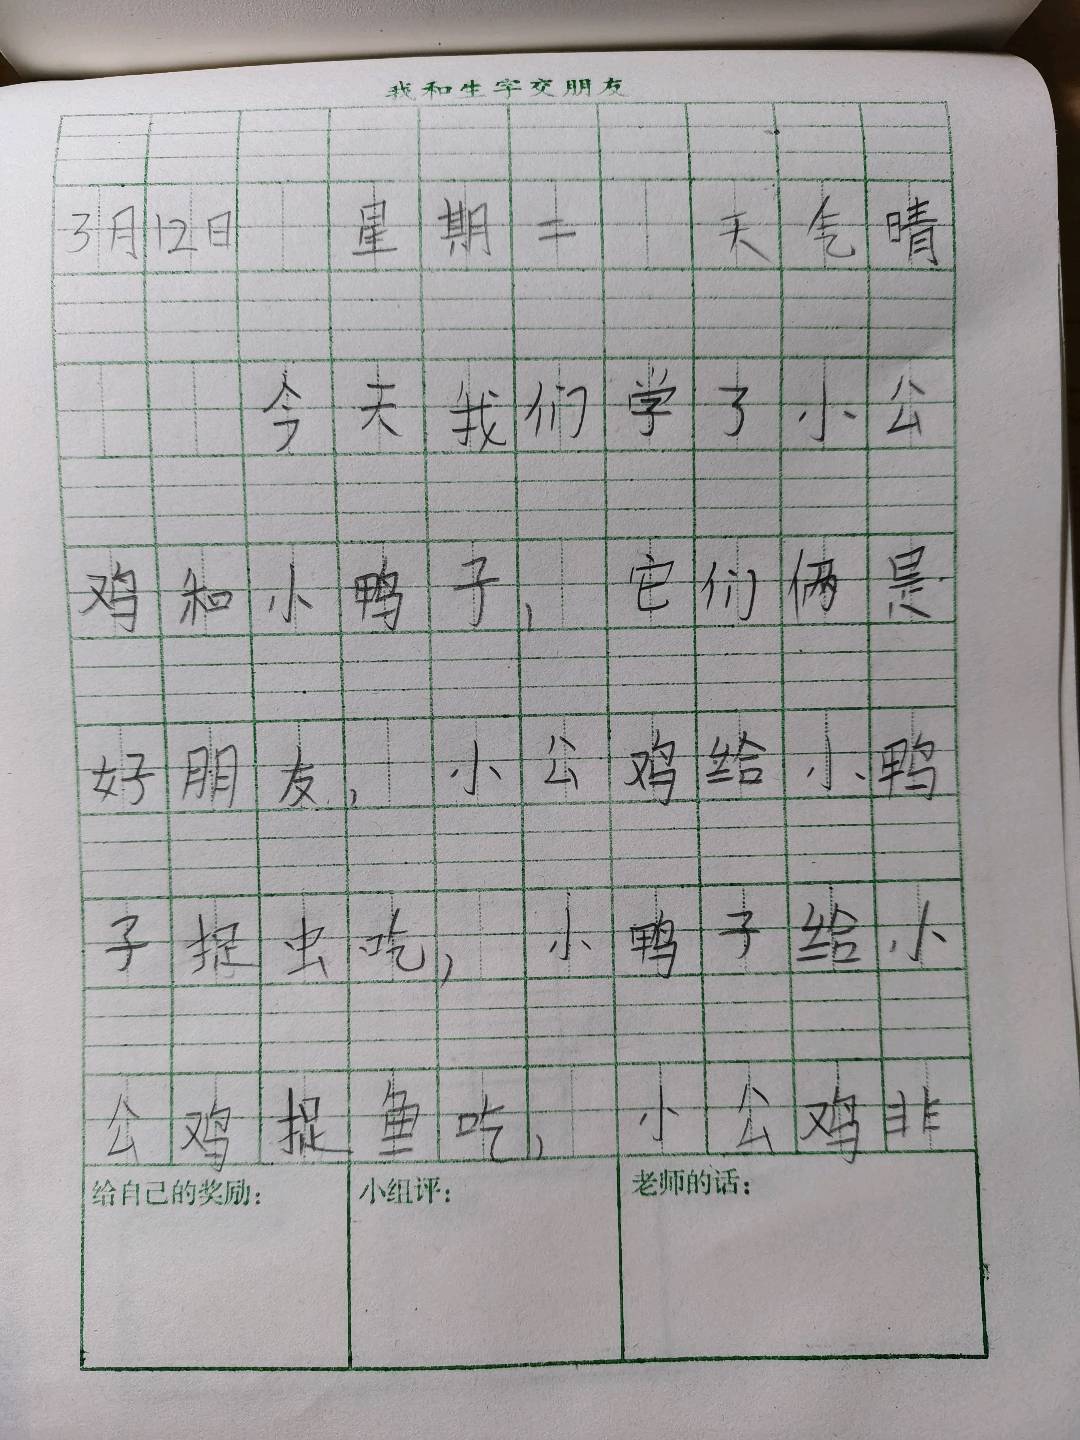 我和生字交朋友
3月12日 星期二 天气晴
今天我们学了小公
鸡和小鸭子, 它们俩是
好朋友, 小公鸡给小鸭
子捉虫吃, 小鸭子给小
公鸡捉鱼吃, 小公鸡非
给自己的奖励: 小组评: 老师的话: